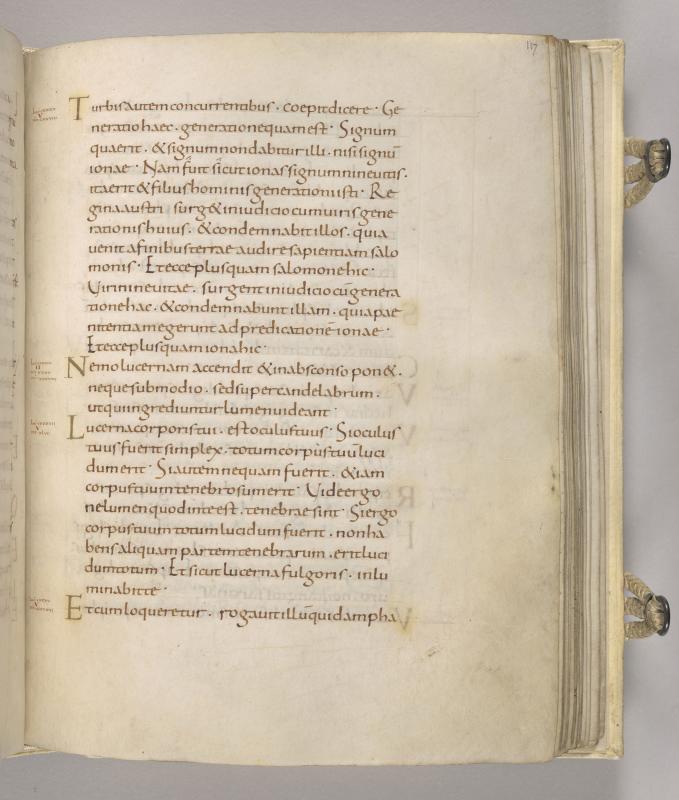 117
Turbis autem concurrentibus · coepit dicere · Ge
neratio haec · generatio nequam est · Signum
quaerit · & signum non dabitur illi · nisi signū
ionae · Nam fuit sicut ionas signum nineuitis ·
ita erit & filius hominis generationi isti · Re
gina austri surg& in iudicio cum uiris gene
rationis huius · & condemnabit illos · quia
uenit a finibus terrae audire sapientiam salo
monis · Et ecce plus quam salomone hic ·
Uiri nineuitae · surgent in iudicio cū genera
tione hac · & condemnabunt illam · quia pae
nitentiam egerunt ad predicationē ionae ·
Et ecce plus quam iona hic ·
Nemo lucernam accendit & in absconso pon& ·
neque sub modio · sed super candelabrum ·
ut qui ingrediuntur lumen uideant ·
Lucerna corporis tui · est oculus tuus · Si oculus
tuus fuerit simplex · totum corpus tuū luci
dum erit · Si autem nequam fuerit · &iam
corpus tuum tenebrosum erit · Uide ergo
ne lumen quod in te est · tenebrae sint · Si ergo
corpus tuum totum lucidum fuerit · non ha
bens aliquam partem tenebrarum · erit luci
dum totum · Et sicut lucerna fulgoris · inlu
minabit te ·
Et cum loqueretur · rogauit illū quidam pha